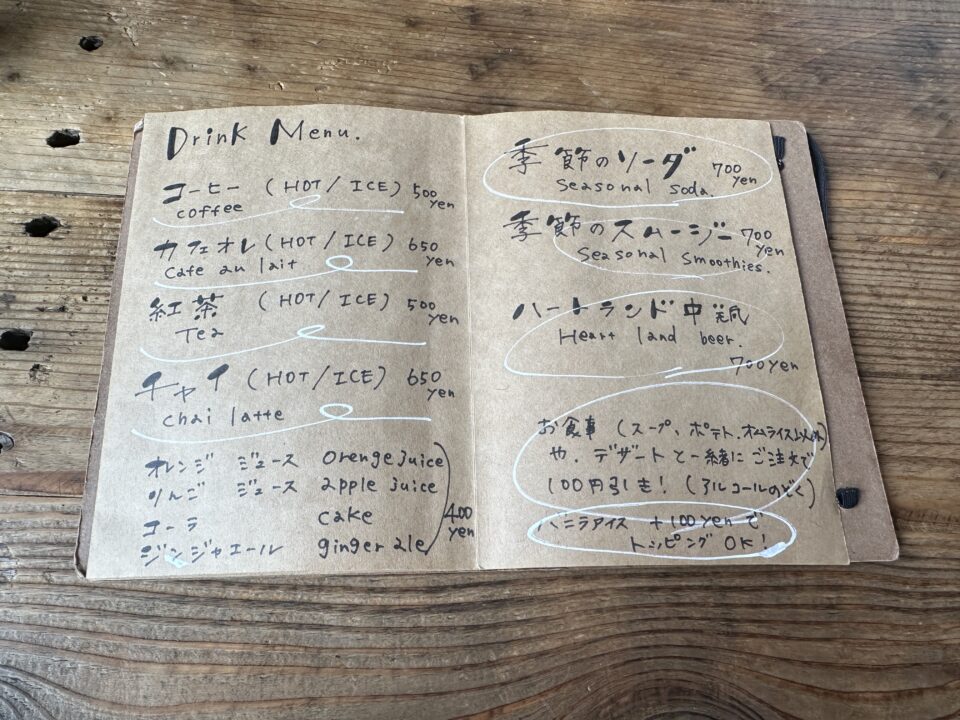 Drink Menu.
コーヒー (HOT/ICE) 500 yen
coffee
カフェオレ (HOT/ICE) 650 yen
Cafe au lait
紅茶 (HOT/ICE) 500 yen
Tea
チャイ (HOT/ICE) 650 yen
chai latte
オレンジ ジュース orenge juice
りんご ジュース apple juice
コーラ cake
ジンジャエール ginger ale
400 yen
季節のソーダ 700 yen
Seasonal soda.
季節のスムージー 700 yen
Seasonal Smoothies.
ハートランド中瓶
Heart land beer.
700 yen
お食事 (スープ、ポテト、オムライス以外)
や、デザートと一緒にご注文で
100円引き! (アルコールのぞく)
バニラアイス +100yenで
トッピング OK!